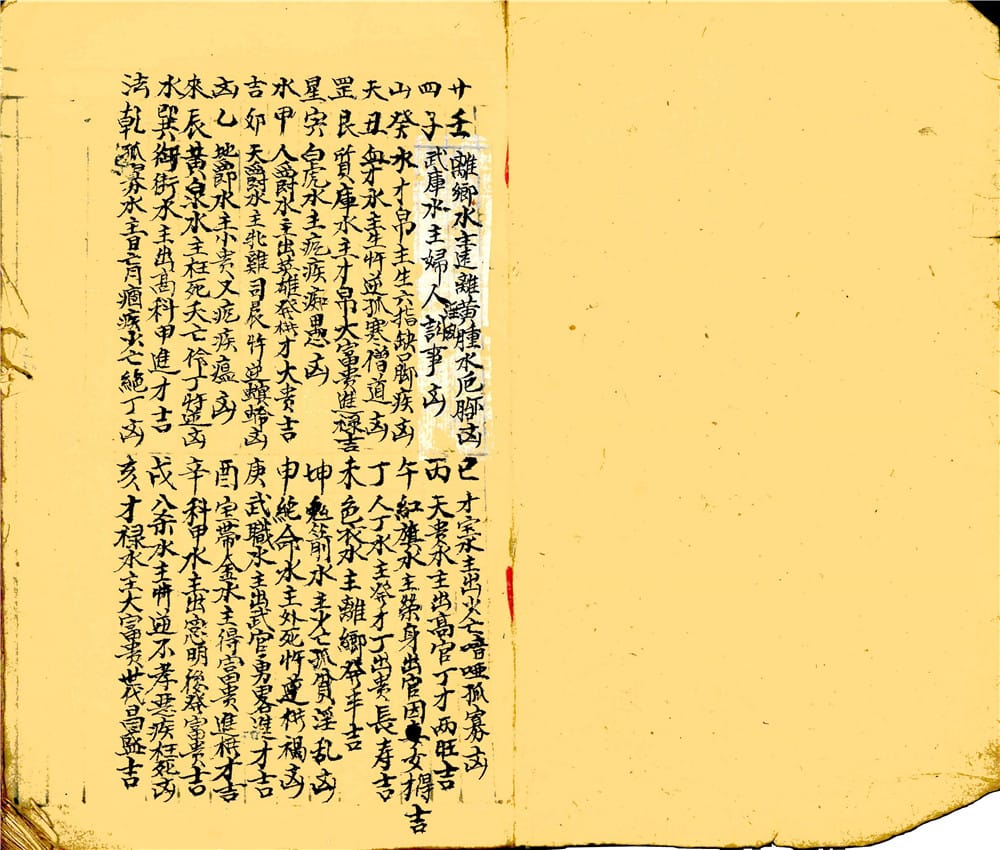 廿四山天罡星水吉凶來水法
壬離鄉水主遠離黃腫水厄腳凶
子武庫水主婦人淫乱訟事凶
癸水才帛主生六指缺脚疾凶
丑血才水主生忤逆孤寒僧道凶
艮質庫水主才帛大富貴進禄吉
寅白虎水主疙疾癡愚凶
甲人爵水主出英雄發横才大貴吉
卯天爵水主牝雞司晨忤逆螟蛉凶
乙地爵水主小貴又疙疾瘟凶
辰黃泉水主枉死夭亡伶丁忤逆凶
巽御街水主出高科甲進才吉
乾孤寡水主目亡月痼疾少亡絶丁凶
巳才宝水主出少亡喑哑孤寡凶
丙天贵水主出高官丁才兩旺吉
午紅旗水主榮身出官因女得吉
丁人丁水主發才丁出贵長寿吉
未色衣水主離鄉發半吉
坤箭水主少亡孤貧淫乱凶
申絶命水主外死忤逆横禍凶
庚武職水主出武官勇畧進才吉
酉宝帶金水主得富贵進横才吉
辛科甲水主出忠明後發富贵吉
戌八杀水主忤逆不孝惡疾枉死凶
亥才禄水主大富贵世代昌盛吉